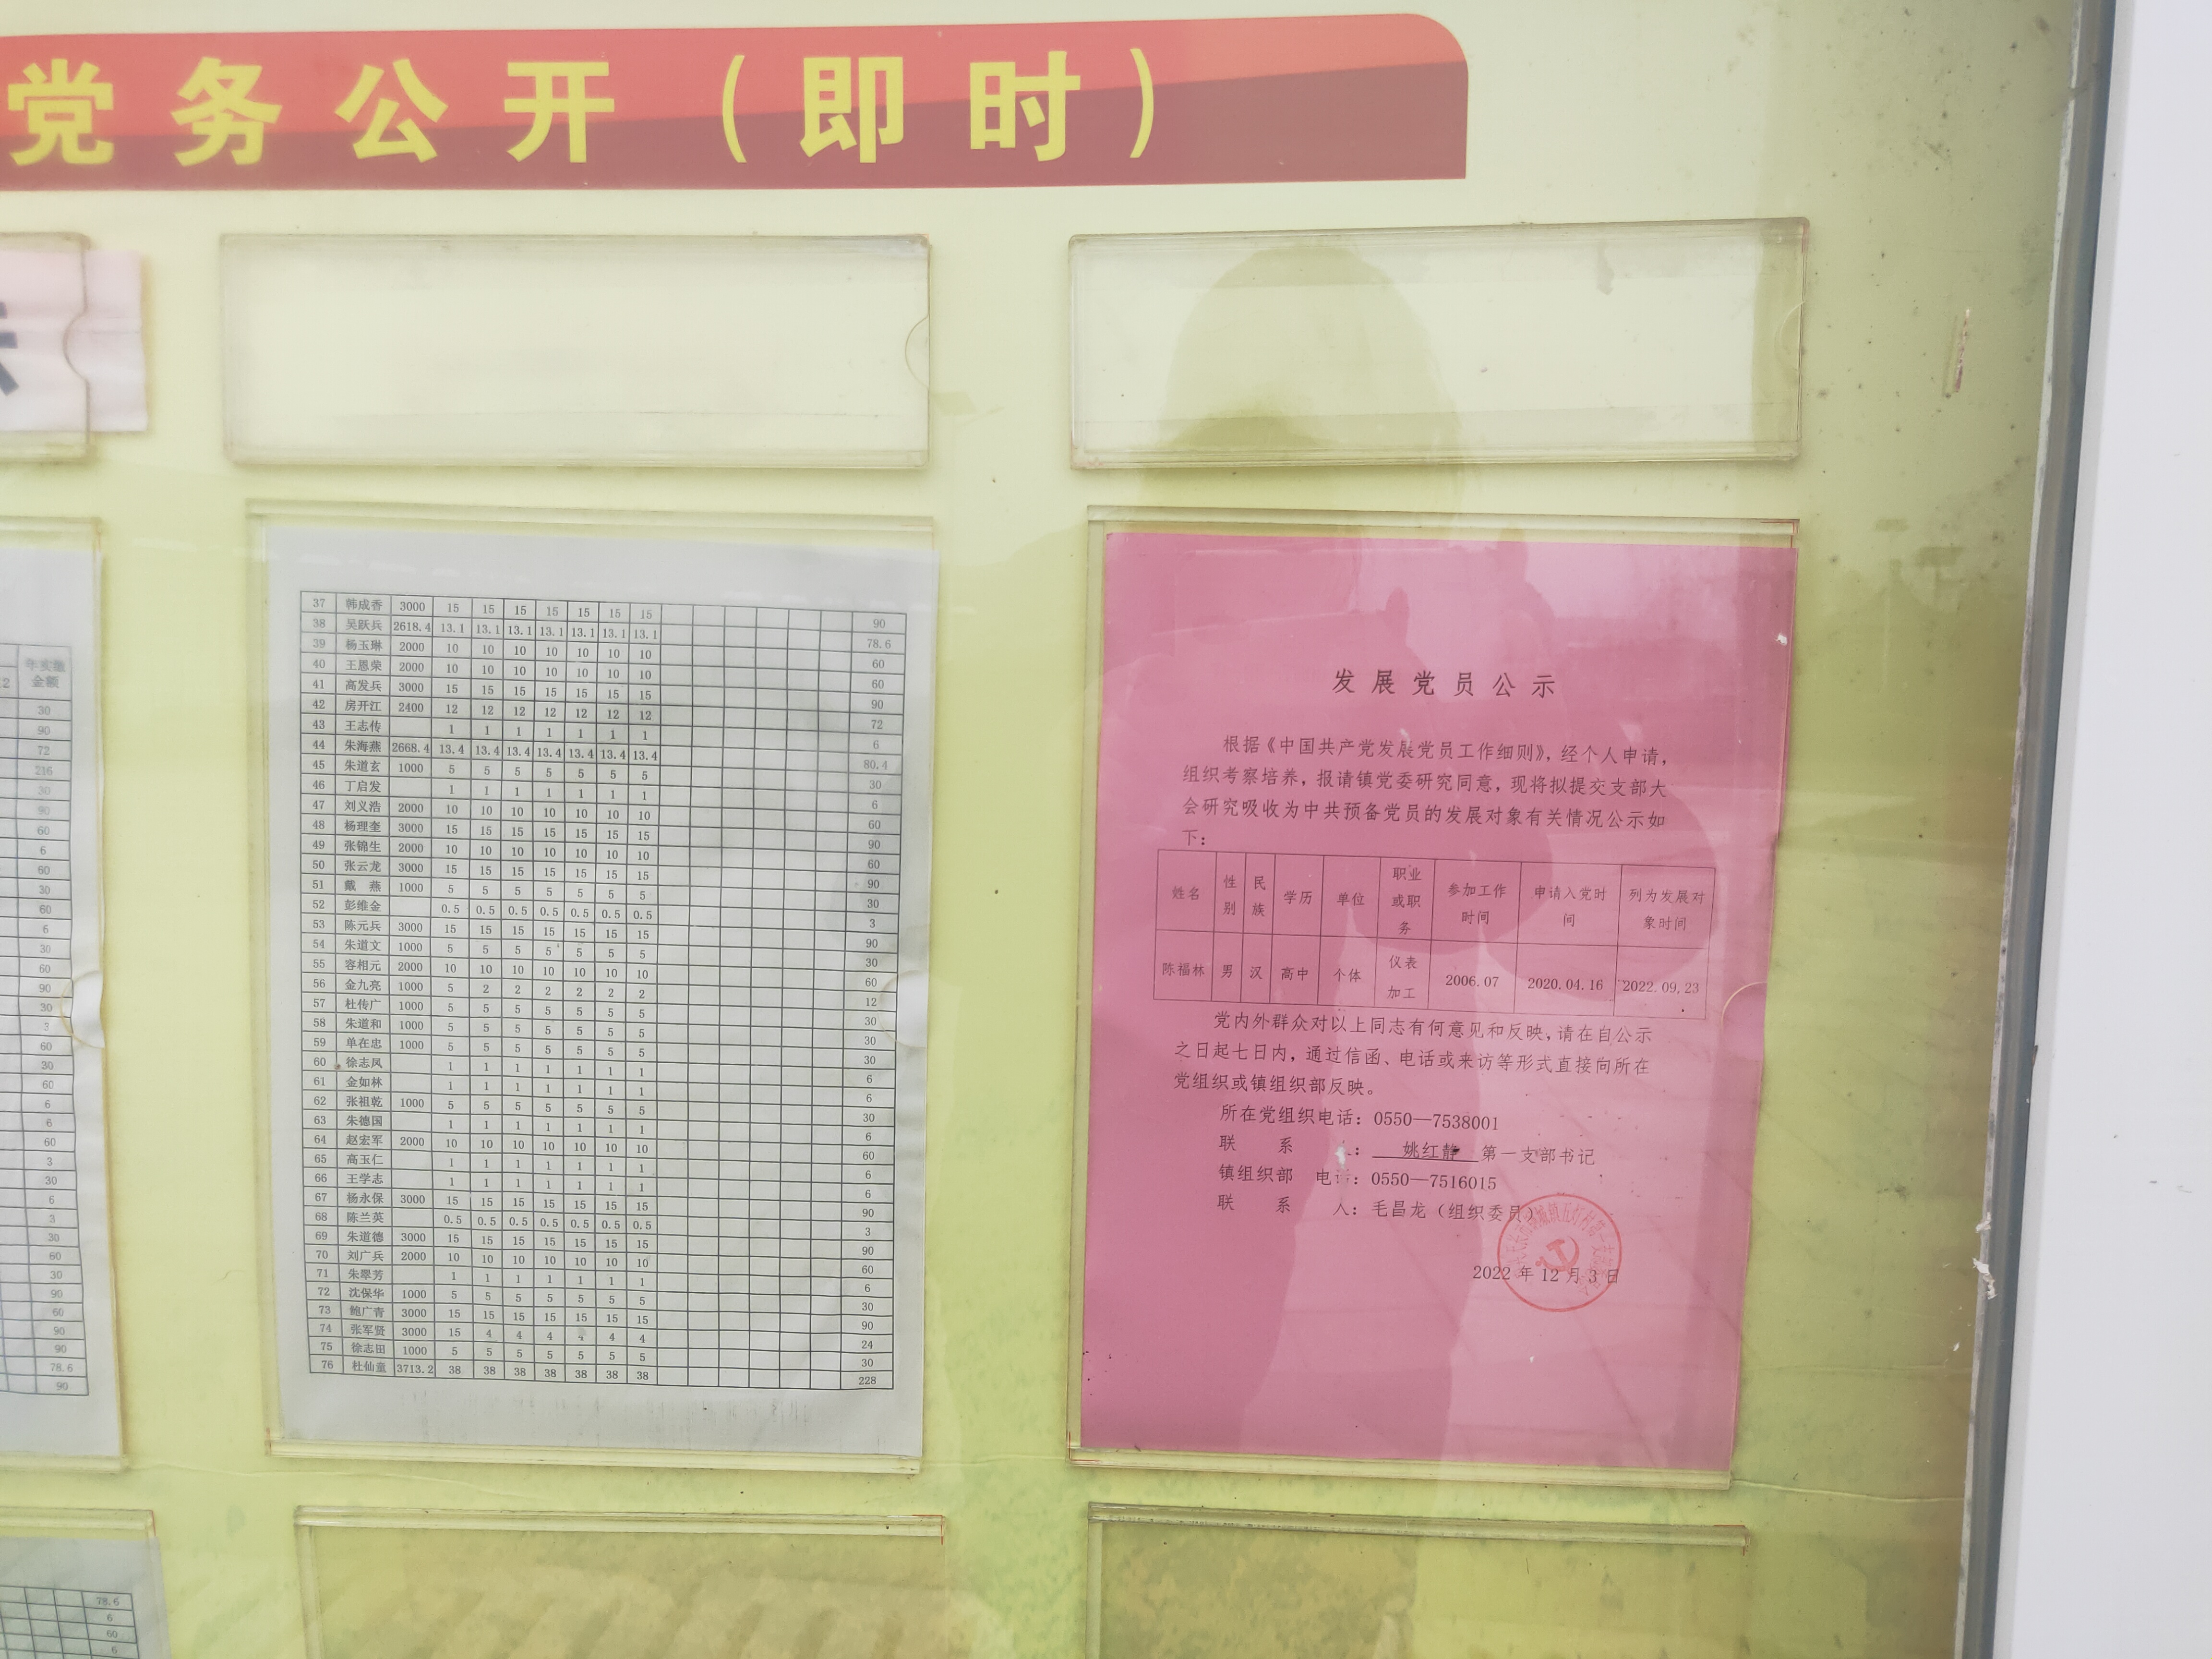 党务公开（即时）
年实缴
金额
2
30
90
72
216
30
90
60
6
60
30
60
6
30
60
90
30
3
60
30
60
6
6
60
3
30
6
3
30
60
30
90
60
90
90
78.6
90
37 韩成香 3000 15 15 15 15 15 15 15 90
38 吴跃兵 2618.4 13.1 13.1 13.1 13.1 13.1 13.1 13.1 78.6
39 杨玉琳 2000 10 10 10 10 10 10 10 60
40 王恩荣 2000 10 10 10 10 10 10 10 60
41 高发兵 3000 15 15 15 15 15 15 15 90
42 房开江 2400 12 12 12 12 12 12 12 72
43 王志传 1 1 1 1 1 1 1 6
44 朱海燕 2668.4 13.4 13.4 13.4 13.4 13.4 13.4 13.4 80.4
45 朱道玄 1000 5 5 5 5 5 5 5 30
46 丁启发 1 1 1 1 1 1 1 6
47 刘义浩 2000 10 10 10 10 10 10 10 60
48 杨理奎 3000 15 15 15 15 15 15 15 90
49 张锦生 2000 10 10 10 10 10 10 10 60
50 张云龙 3000 15 15 15 15 15 15 15 90
51 戴 燕 1000 5 5 5 5 5 5 5 30
52 彭维金 0.5 0.5 0.5 0.5 0.5 0.5 0.5 3
53 陈元兵 3000 15 15 15 15 15 15 15 90
54 朱道文 1000 5 5 5 5 5 5 5 30
55 容相元 2000 10 10 10 10 10 10 10 60
56 金九亮 1000 5 2 2 2 2 2 2 12
57 杜传广 1000 5 5 5 5 5 5 5 30
58 朱道和 1000 5 5 5 5 5 5 5 30
59 单在忠 1000 5 5 5 5 5 5 5 30
60 徐志凤 1 1 1 1 1 1 1 6
61 金如林 1 1 1 1 1 1 1 6
62 张祖乾 1000 5 5 5 5 5 5 5 30
63 朱德国 1 1 1 1 1 1 1 6
64 赵宏军 2000 10 10 10 10 10 10 10 60
65 高玉仁 1 1 1 1 1 1 1 6
66 王学志 1 1 1 1 1 1 1 6
67 杨永保 3000 15 15 15 15 15 15 15 90
68 陈兰英 0.5 0.5 0.5 0.5 0.5 0.5 0.5 3
69 朱道德 3000 15 15 15 15 15 15 15 90
70 刘广兵 2000 10 10 10 10 10 10 10 60
71 朱翠芳 1 1 1 1 1 1 1 6
72 沈保华 1000 5 5 5 5 5 5 5 30
73 鲍广青 3000 15 15 15 15 15 15 15 90
74 张军贤 3000 15 4 4 4 4 4 4 24
75 徐志田 1000 5 5 5 5 5 5 5 30
76 杜仙童 3713.2 38 38 38 38 38 38 38 228
发展党员公示
根据《中国共产党发展党员工作细则》，经个人申请，
组织考察培养，报请镇党委研究同意，现将拟提交支部大
会研究吸收为中共预备党员的发展对象有关情况公示如
下：
姓名 性别 民族 学历 单位 职业或职务 参加工作时间 申请入党时间 列为发展对象时间
陈福林 男 汉 高中 个体 仪表加工 2006.07 2020.04.16 2022.09.23
党内外群众对以上同志有何意见和反映，请在自公示
之日起七日内，通过信函、电话或来访等形式直接向所在
党组织或镇组织部反映。
所在党组织电话：0550—7538001
联 系 ：姚红静 第一支部书记
镇组织部 电：0550—7516015
联 系 人：毛昌龙（组织委员）
2022年12月3日
78.6
6
60
6